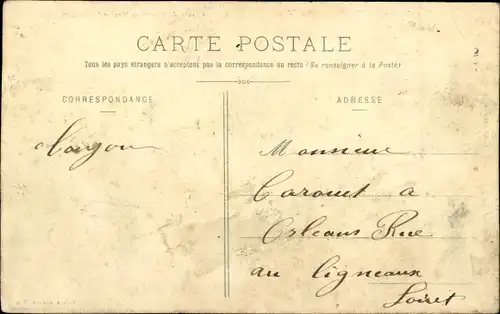 CARTE POSTALE
Tous les pays étrangers n'acceptent pas la correspondance au recto (Se renseigner à la Poste)
CORRESPONDANCE
ADRESSE
Monsieur
a
Orleans Rue
au ligneaux
Loiret